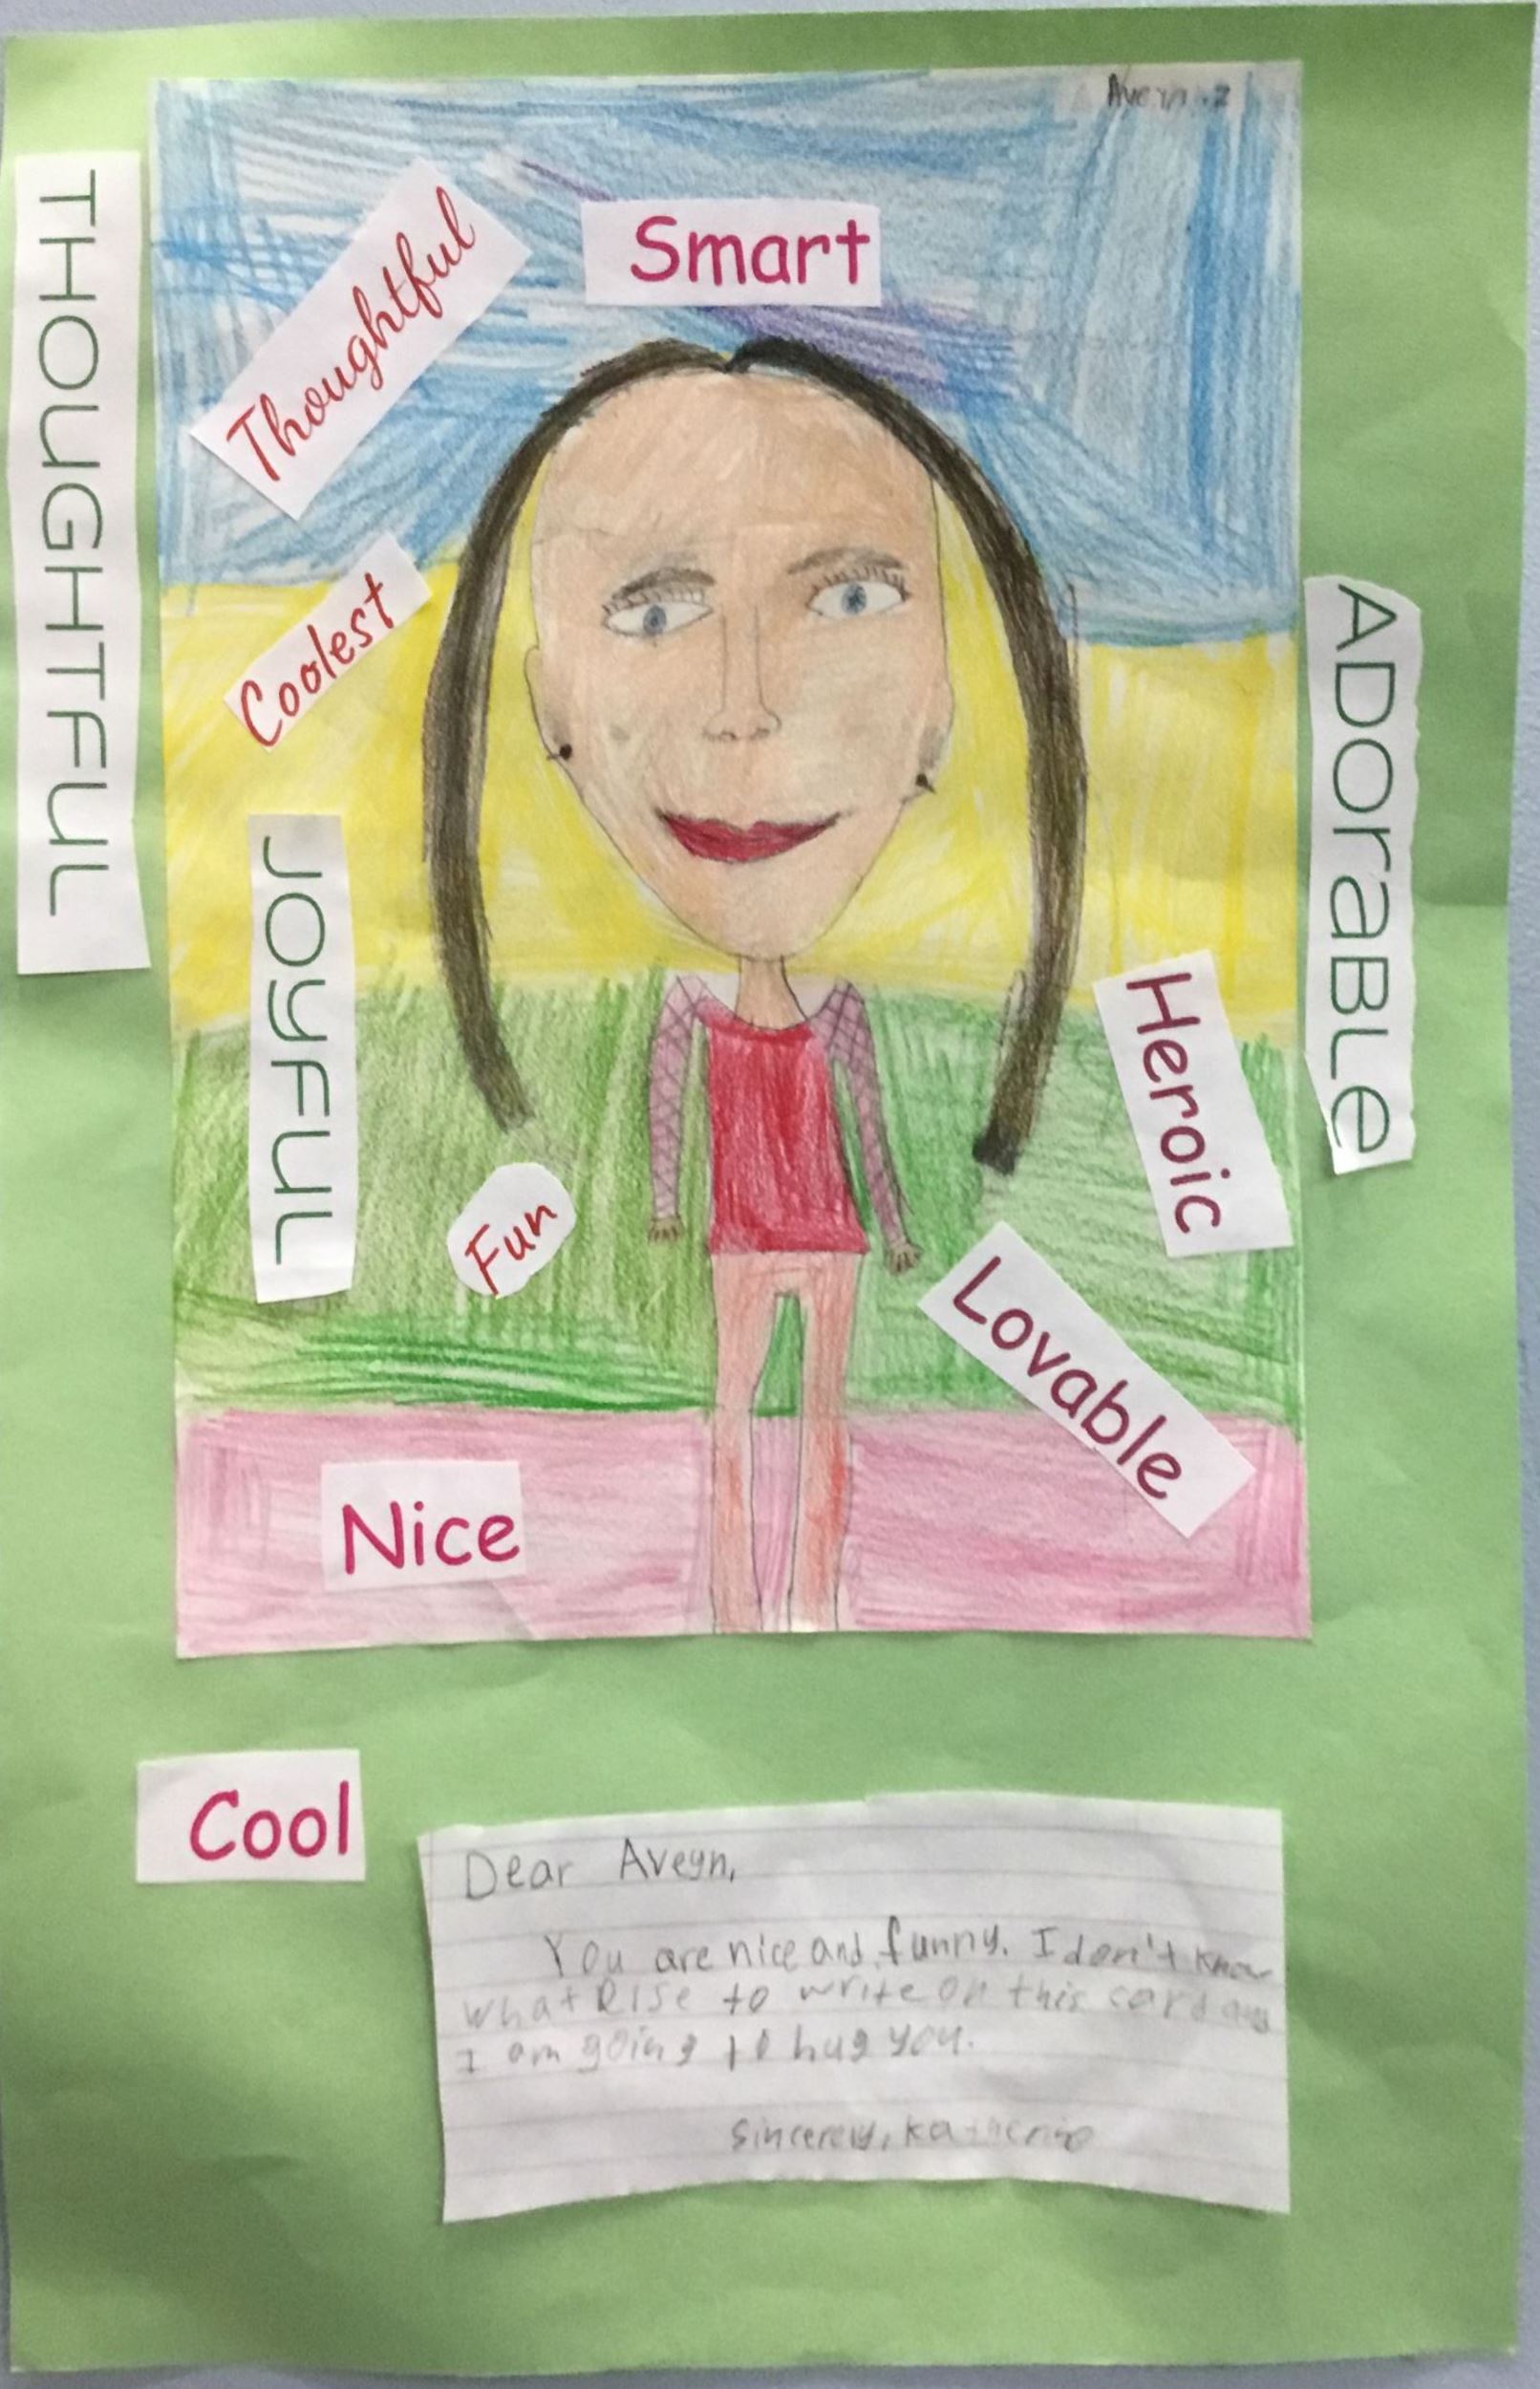 Smart
Thoughtful
THOUGHTFUL
Coolest
ADORABLE
JOYFUL
Heroic
Fun
Lovable
Nice
Cool
Dear Aveyn,
You are nice and funny. I don't know
what to write on this card
I am going to hug you.
Sincerely, Katherine